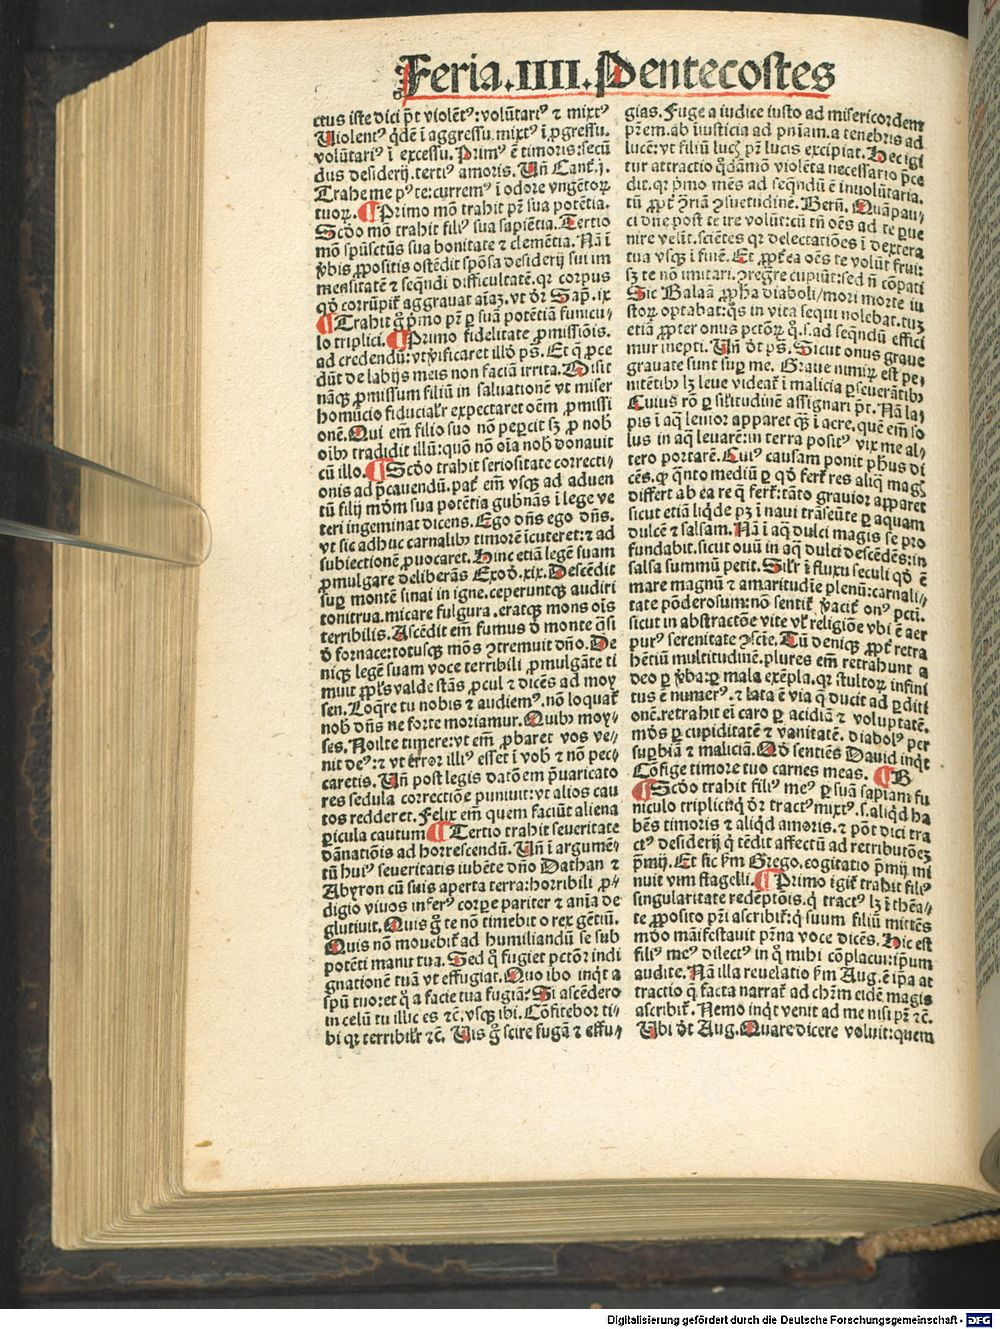 Feria.IIII.Pentecostes
ctus iste dici p̄t violētꝰ:volūtariꝰ ⁊ mixtꝰ
Uiolentꝰ q̇dē ī aggressu.mixtꝰ ī ꝓgressu.
volūtariꝰ ī excessu. Primꝰ ē timoris:secū
dus desiderij.tertiꝰ amoris. Uñ Cant.j.
Trahe me pꝰ te:curremꝰ ī odore vngētoꝝ
tuoꝝ. ¶ Primo mō trahit pr̄ sua potētia.
Scdo mō trahit filiꝰ sua sapiētia. Tertio
mō spūsctūs sua bonitate ⁊ clemētia. Nā ī
v̄bis ꝓpositis ostēdit spōsa desiderij sui im
mensitatē ⁊ seqn̄di difficultatē.qꝛ corpus
qd̄ corrūpit̄ aggrauat aīaꝫ.vt dr̄ Sap̄.ix
¶ Trahit g̊ pͥmo pr̄ ꝑ suā potētiā funicu⸗
lo triplici. ¶ Primo fidelitate ꝓmissiōis.
ad credendū:vt v̓ificaret illd̄ ps̄. Et q̄ ꝓce
dūt de labijs meis non faciā irrita. Misit
nāqꝫ ꝓmissum filiū in saluationē vt miser
homūcio fiducialr̄ expectaret oēm ꝓmissi
onē. Qui em̄ filio suo nō peꝑcit sꝫ ꝓ nob̄
oībꝰ tradidit illū:quō nō oīa nob̄ donauit
cū illo. ¶ Scdo trahit seriositate correcti⸗
onis ad p̄cauendū.pat̄ em̄ vsqꝫ ad aduen
tū filij mōm sua potētia gubnās ī lege ve
teri ingeminat dicens. Ego dn̄s ego dn̄s.
vt sic adhuc carnalibꝰ timorē īcuteret:⁊ ad
subiectionē ꝓuocaret. Hinc etiā legē suam
ꝓmulgare deliberās Exod̄.xix. Descēdit
suꝑ montē sinai in igne.ceperuntqꝫ audiri
tonitrua.micare fulgura.eratqꝫ mons oīs
terribilis. Ascēdit em̄ fumus d̄ monte q̄si
d̄ fornace:totusqꝫ mōs ꝯtremuit dn̄o. De
niqꝫ legē suam voce terribili ꝓmulgāte ti
muit ꝓpls̄ valde stās ꝓcul ⁊ dicēs ad moy
sen. Loq̄re tu nobis ⁊ audiemꝰ.nō loquat̄
nob̄ dn̄s ne forte moriamur. Quibꝰ moy⸗
ses. Nolite timere:vt em̄ ꝓbaret vos ve⸗
nit deꝰ:⁊ vt error illiꝰ esset ī vob̄ ⁊ nō pec⸗
caretis. Uñ post legis datōem p̄uaricato
res sedula correctiōe puniuit:vt alios cau
tos redderet. Felix em̄ quem faciūt aliena
ꝑicula cautum ¶ Tertio trahit seueritate
dānatiōis ad horrescendū. Uñ ī argumē⸗
tū huiꝰ seueritatis iubēte dn̄o Dathan ⁊
Abyron cū suis aperta terra:horribili ꝓ⸗
digio viuos inferꝰ corꝑe pariter ⁊ anīa de
glutiuit. Quis g̊ te nō timebit o rex gētiū.
Quis nō mouebit̄ ad humiliandū se sub
potēti manu tua. Sed q̊ fugiet pctōr indi
gnationē tuā vt effugiat. Quo ibo inq̇t a
spū tuo:et q̊ a facie tua fugiā? Si ascēdero
in celū tu illic es ⁊c̄.vsqꝫ ibi. Cōfitebor ti⸗
bi qꝛ terribilr̄ ⁊c̄. Uis g̊ scire fugā ⁊ effu⸗
gias. Fuge a iudice iusto ad misericordem
pr̄em.ab iusticia ad pn̄iam.a tenebris ad
lucē:vt filiū lucꝫ pr̄ lucis excipiat. Hec igi
tur attractio q̇dāmō violēta necessario p̄ce
dit.qꝛ pͥmo mēs ad seqn̄dū ē inuolūtaria.
tū ꝓpt̄ ꝯr̄iā ꝯsuetudinē. Bern̄. Quā pau⸗
ci dn̄e post te ire volūt:cū tn̄ oēs ad te ꝑue
nire velīt.sciētes qꝛ delectatiōes ī dextera
tua vsqꝫ ī finē. Et ꝓpt̄ea oēs te volūt frui:
sꝫ te nō imitari.ꝯregre cupiūt:sed n̄ cōpati
Sic Balaā ꝓpha diaboli/mori morte iu
stoꝝ optabat:q̊s in vita sequi nolebat.tuꝫ
etiā ꝓpter onus pctōꝝ q̊.s.ad seqn̄dū effici
mur inepti. Uñ dt̄ ps̄. Sicut onus graue
grauate sunt suꝑ me. Graue nimiꝝ est pe⸗
nitētibꝰ lꝫ leue videat̄ ī malicia ꝑseuerātibꝰ
Cuius rō ꝑ silitudinē assignari p̄t. Nā la⸗
pis ī aq̄ leuior apparet qꝫ ī aere.quē em̄ so
lus in aq̄ leuarē:in terra positꝰ vix me al⸗
tero portarē. Cuiꝰ causam ponit ph̄us di
cēs.qꝛ q̄nto mediū ꝑ qd̄ fert̄ res aliq̄ mag̛
differt ab ea re q̄ fert̄:tāto grauior apparet
sicut etiā liq̇de pꝫ ī naui trāseūte ꝑ aquam
dulcē ⁊ salsam. Nā ī aq̄ dulci magis se pro
fundabit.sicut ouū in aq̄ dulci descēdēs:in
salsa summū petit. Silr̄ ī fluxu seculi qd̄ ē
mare magnū ⁊ amaritudīe plenū:carnali⸗
tate pōderosum:nō sentit̄ v̓acit̄ onꝰ pcti.
sicut in abstractōe vite vl̄ religiōe vbi ē aer
purꝰ serenitate ꝯscīe. Tū deniqꝫ ꝓpt̄ retra
hētiū multitudinē.plures em̄ retrahunt a
deo ꝑ v̓ba:ꝑ mala exēpla.qꝛ stultoꝝ infini
tus ē numerꝰ.⁊ lata ē via q̄ ducit ad ꝑditi
onē.retrahit eī caro ꝑ acidiā ⁊ voluptatē.
mōs ꝑ cupiditatē ⁊ vanitatē. diabolꝰ per
suꝑbiā ⁊ maliciā. Qd̄ sentiēs Dauid inq̇t
Cōfige timore tuo carnes meas. ¶ B
¶ Scdo trahit filiꝰ meꝰ ꝑ suā sapiam fu
niculo triplici:q̇ dr̄ tractꝰ mixtꝰ.s.aliqd̄ ha
bēs timoris ⁊ aliqd̄ amoris.⁊ pōt dici tra
ctꝰ desiderij q̇ tēdit affectū ad retributōeꝫ
p̄mij. Et sic ẜm Grego.cogitatio p̄mij mi
nuit vim flagelli. ¶ Primo igit̄ trahit filiꝰ
singularitate redēptōis.q̇ tractꝰ lꝫ ī thēa⸗
te ꝓposito pr̄i ascribit̄:q̇ suum filiū mittēs
mōo māifestauit pr̄na voce dicēs. Hic est
filiꝰ meꝰ dilectꝰ in q̊ mihi cōplacui:ip̄um
audite. Nā illa reuelatio ẜm Aug.ē ip̄a at
tractio q̄ facta narrat̄ ad chr̄m eidē magis
ascribit̄. Nemo inq̇t venit ad me nisi pr̄ ⁊c̄.
Ubi dt̄ Aug. Quare dicere voluit:quem
Digitalisierung gefördert durch die Deutsche Forschungsgemeinschaft - DFG